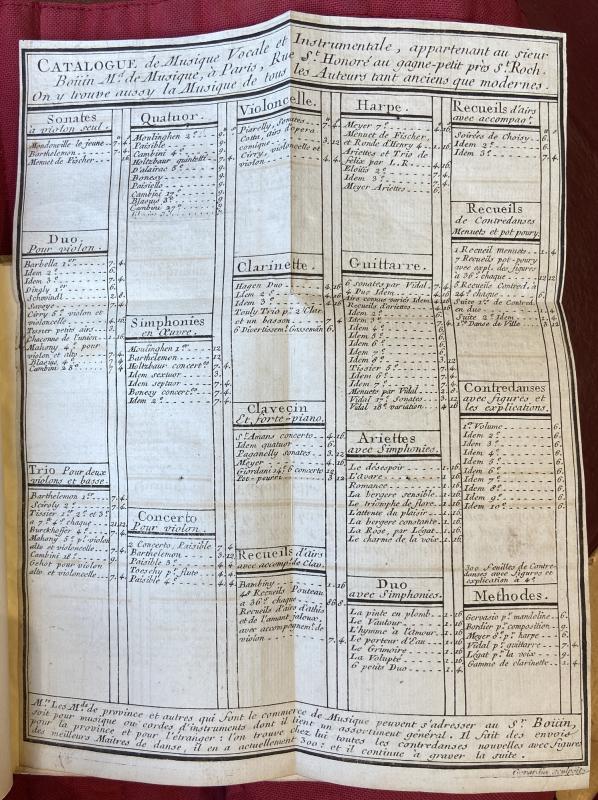 CATALOGUE de Musique Vocale et Instrumentale, appartenant au sieur
Boüin Md. de Musique, à Paris, Rue St. Honoré au gagne-petit près St. Roch.
On y trouve aussy la Musique de tous les Auteurs tant anciens que modernes.
Sonates
à violon seul.
Mondonville le jeune 7. 4.
Barthelemon 7. 4.
Menuet de Fischer
Duo
Pour violon.
Barbella 1er 7. 4.
Idem 2e. 6.
Idem 3e. 7. 4.
Dingly 1er
Schmindl
Savoye
Cirry 5e. violon et
violoncelle
Tissier petits airs
Chaconne de l'union
Mahony 4e. pour
violon et alto
Blasius 4e.
Cambini 28e.
Trio Pour deux
violons et basse.
Barthelemon 1er 7. 4.
Sciroly 2e.
Tissier 1er 2e. et 3e.
a 7# 4s chaque
Burckhoffer 4e.
Mahony 5e. pr. violon
alto et violoncelle
Cambini 18e.
Gehot pour violon
alto et violoncelle 7. 4.
Quatuor.
Moulinghen 2e. 9.
Paisible 9.
Cambini 4e. 9.
Holtzbaur quintetti 7. 4.
D'alairac 5e. 9.
Bonesy 9.
Paisiello 9.
Cambini 17e. 9.
Blasius 3e. 9.
Cambini 27e. 9.
Simphonies
en Œuvre.
Moulinghen 1er 12.
Barthelemon 12.
Holtzbaur concerte 7. 4.
Idem sextuor 3. 12.
Idem septuor 7. 4.
Bonezy concerte 7. 4.
Idem 2e. 7. 4.
Concerto
Pour violon.
2 Concerto, Paisible 4. 4.
Barthelemon 3. 12.
Paisible 3e. 4. 4.
Toeschy pr. flute 4. 4.
Paisible 4e. 4. 4.
Violoncelle.
Piarelly, Sonates
Cotta, airs d'opera
comique
Cirry, violoncelle et
violon 7. 4.
Clarinette.
Hagen Duo 4. 16.
Idem 2e. 4. 16.
Idem 3e. 4. 16.
Touly Trio pr. 2 Clar.
et un basson 7. 4.
6 Divertissem. Gasseman 6.
Clavecin
Et forte-piano.
St. Amans concerto 4. 16.
Idem quatuor 6.
Paganelly sonates 3. 12.
Meyer 4. 16.
Giordani 14e. 6 concerto 12.
Pot-poury 3. 12.
Recueils d'airs
avec accompt. de Clav.
Bambiny 1. 16.
48 Recueils Pouteau
a 36s. chaque 86. 8.
Recueils d'airs d'athis
et de l'amant jaloux,
avec accompagnemt. de
violon 7. 4.
Harpe.
Meyer 7e. 4. 16.
Menuet de Fischer,
et Ronde d'Henry 4.
Ariettes et Trio de
felix par L. R.
Eloüis 2e.
Idem 3e.
Meyer Ariettes 6.
Guittarre.
6 sonates par Vidal 7. 4.
4 Duo Idem
Airs connus variés Idem
Recueil d'ariettes
Idem 2e.
Idem 3e.
Idem 4e.
Idem 5e.
Idem 6e.
Idem 7e.
Idem 8e.
Tissier 5e.
Idem 6e.
Idem 7e.
Menuets par Vidal
Vidal 17e. Sonates 3. 12.
Vidal 18e. variation 4. 16.
Ariettes
avec Simphonies.
Le désespoir 1. 16.
L'avare 1. 16.
Romance 1. 16.
La bergere sensible 1. 16.
Le triomphe de flore 1. 16.
L'attente du plaisir 1. 16.
La bergere constante 1. 16.
La Rose, par Légat 1. 16.
Le charme de la voix 1. 16.
Duo
avec Simphonies.
La pinte en plomb 1. 16.
Le Vautour 1. 16.
L'hymme à l'amour 1. 16.
Le porteur d'Eau 1. 16.
Le Grimoire 1. 16.
La Volupté 1. 16.
6 petits Duo 1. 4.
Recueils d'airs
avec accompart.
Soirées de Choisy 6.
Idem 2e. 6.
Idem 3e. 7. 4.
Recueils
de Contredanses
Menuets et pot poury.
1 Recueil menuets 1. 4.
7 Recueils pot-poury
avec expl. des figures
a 36s. chaque 12. 12.
5 Recueils Contred. à
24s. chaque 6.
Suite 1re. de Contred.
en duo
Suite 2e. Idem
1re. Danse de Ville
Contredanses
avec figures et
les explications.
1er. Volume 6.
Idem 2e. 6.
Idem 3e. 6.
Idem 4e. 6.
Idem 5e. 6.
Idem 6e. 6.
Idem 7e. 6.
Idem 8e. 6.
Idem 9e. 6.
Idem 10e. 6.
300 feuilles de Contre-
danses avec figures et
explication à 4s.
Methodes.
Gervasio pr. mandoline 6.
Bordier pr. composition 9.
Meyer 8e. pr. harpe 6.
Vidal pr. guittarre 7. 4.
Légat pr. la voix 9.
Gamme de clarinette 1. 4.
Mrs. Les Mds. de province et autres qui font le commerce de Musique peuvent s'adresser au Sr. Boüin,
soit pour musique ou cordes d'instruments dont il tient un assortiment général. Il fait des envois
pour la province et pour l'étranger: l'on trouve chez lui toutes les contredanses nouvelles avec figures
des meilleurs Maitres de danse, il en a actuellement 300; et il continue à graver la suite.